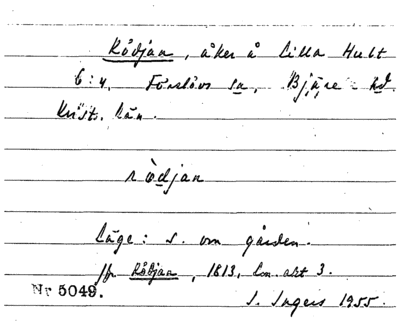 Rödjan, åker å Lilla Hult
6:4, Förslövs sn, Bjäre hd
Krist. län.
rödjan
Läge: s. om gården.
Jfr Rödjan, 1813, Lm. akt 3.
Nr 5049.
I. Ingers 1955.